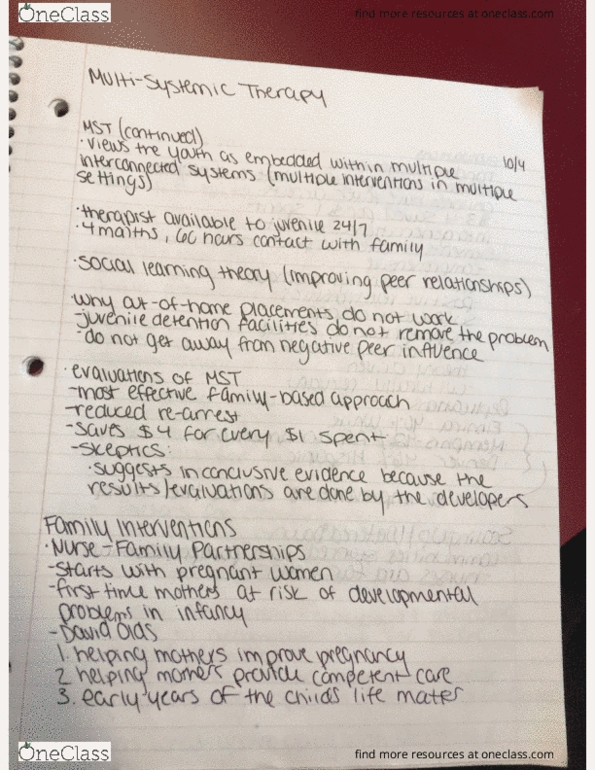 OneClass
find more resources at oneclass.com
Multi-Systemic Therapy
10/4
MST (continued)
·views the youth as embedded within multiple
interconnected systems (multiple interventions in multiple
settings)
·therapist available to juvenile 24/7
·4 months, 60 hours contact with family
·social learning theory (improving peer relationships)
·why out-of-home placements do not work
-juvenile detention facilities do not remove the problem
-do not get away from negative peer influence
·evaluations of MST
-most effective family-based approach
-reduced re-arrest
-saves $4 for every $1 spent
-skeptics:
·suggests inconclusive evidence because the
results/evaluations are done by the developers
Family Interventions
·Nurse-Family Partnerships
-starts with pregnant women
-first time mothers at risk of developmental
problems in infancy
-David Olds
1. helping mothers improve pregnancy
2. helping mothers provide competent care
3. early years of the child's life matter
OneClass
find more resources at oneclass.com